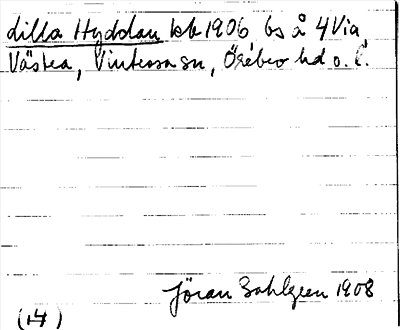 Lilla Hyddan bb 1906 bs å 4 Via,
Västra, Vintrosa sn, Örebro hd o. l.
Jöran Sahlgren 1908
(14)